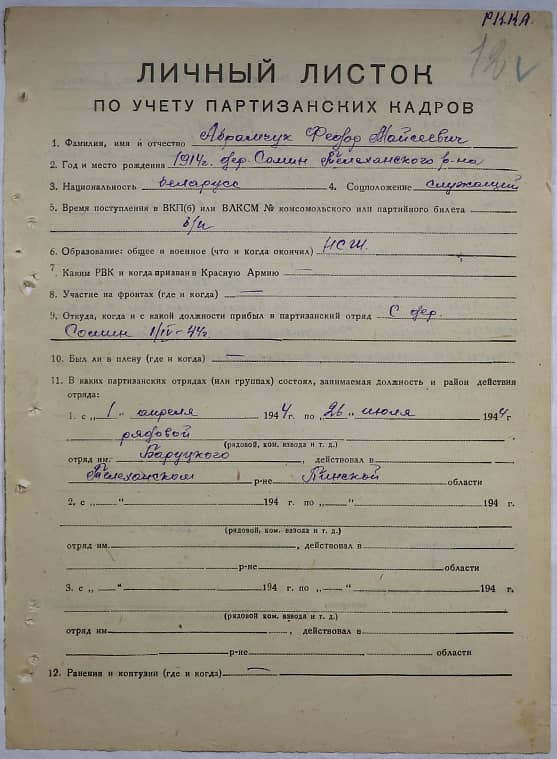 РККА.
12
ЛИЧНЫЙ ЛИСТОК
ПО УЧЕТУ ПАРТИЗАНСКИХ КАДРОВ
1. Фамилия, имя и отчество Абрамчук Феодор Мойсеевич
2. Год и место рождения 1914г. дер. Сомин Телеханского р-на
3. Национальность беларусс 4. Соцположение служащий
5. Время поступления в ВКП(б) или ВЛКСМ № комсомольского или партийного билета
б/п
6. Образование: общее и военное (что и когда окончил) НСШ.
7. Каким РВК и когда призван в Красную Армию —
8. Участие на фронтах (где и когда) —
9. Откуда, когда и с какой должности прибыл в партизанский отряд С дер.
Сомин 1/IV-44г
10. Был ли в плену (где и когда) —
11. В каких партизанских отрядах (или группах) состоял, занимаемая должность и район действия
отряда:
1. с „1" апреля 1944 г. по „26" июля 1944 г
рядовой
(рядовой, ком. взвода и т. д.)
отряд им. Баруцкого, действовал в
Телеханском р-не Пинской области
2. с „ " 194 г. по „ " 194 г.
(рядовой, ком. взвода и т. д.)
отряд им , действовал в
р-не области
3. с „ " 194 г. по „ " 194 г.
(рядовой, ком. взвода и т. д.)
отряд им , действовал в
р-не области
12. Ранения и контузии (где и когда) —